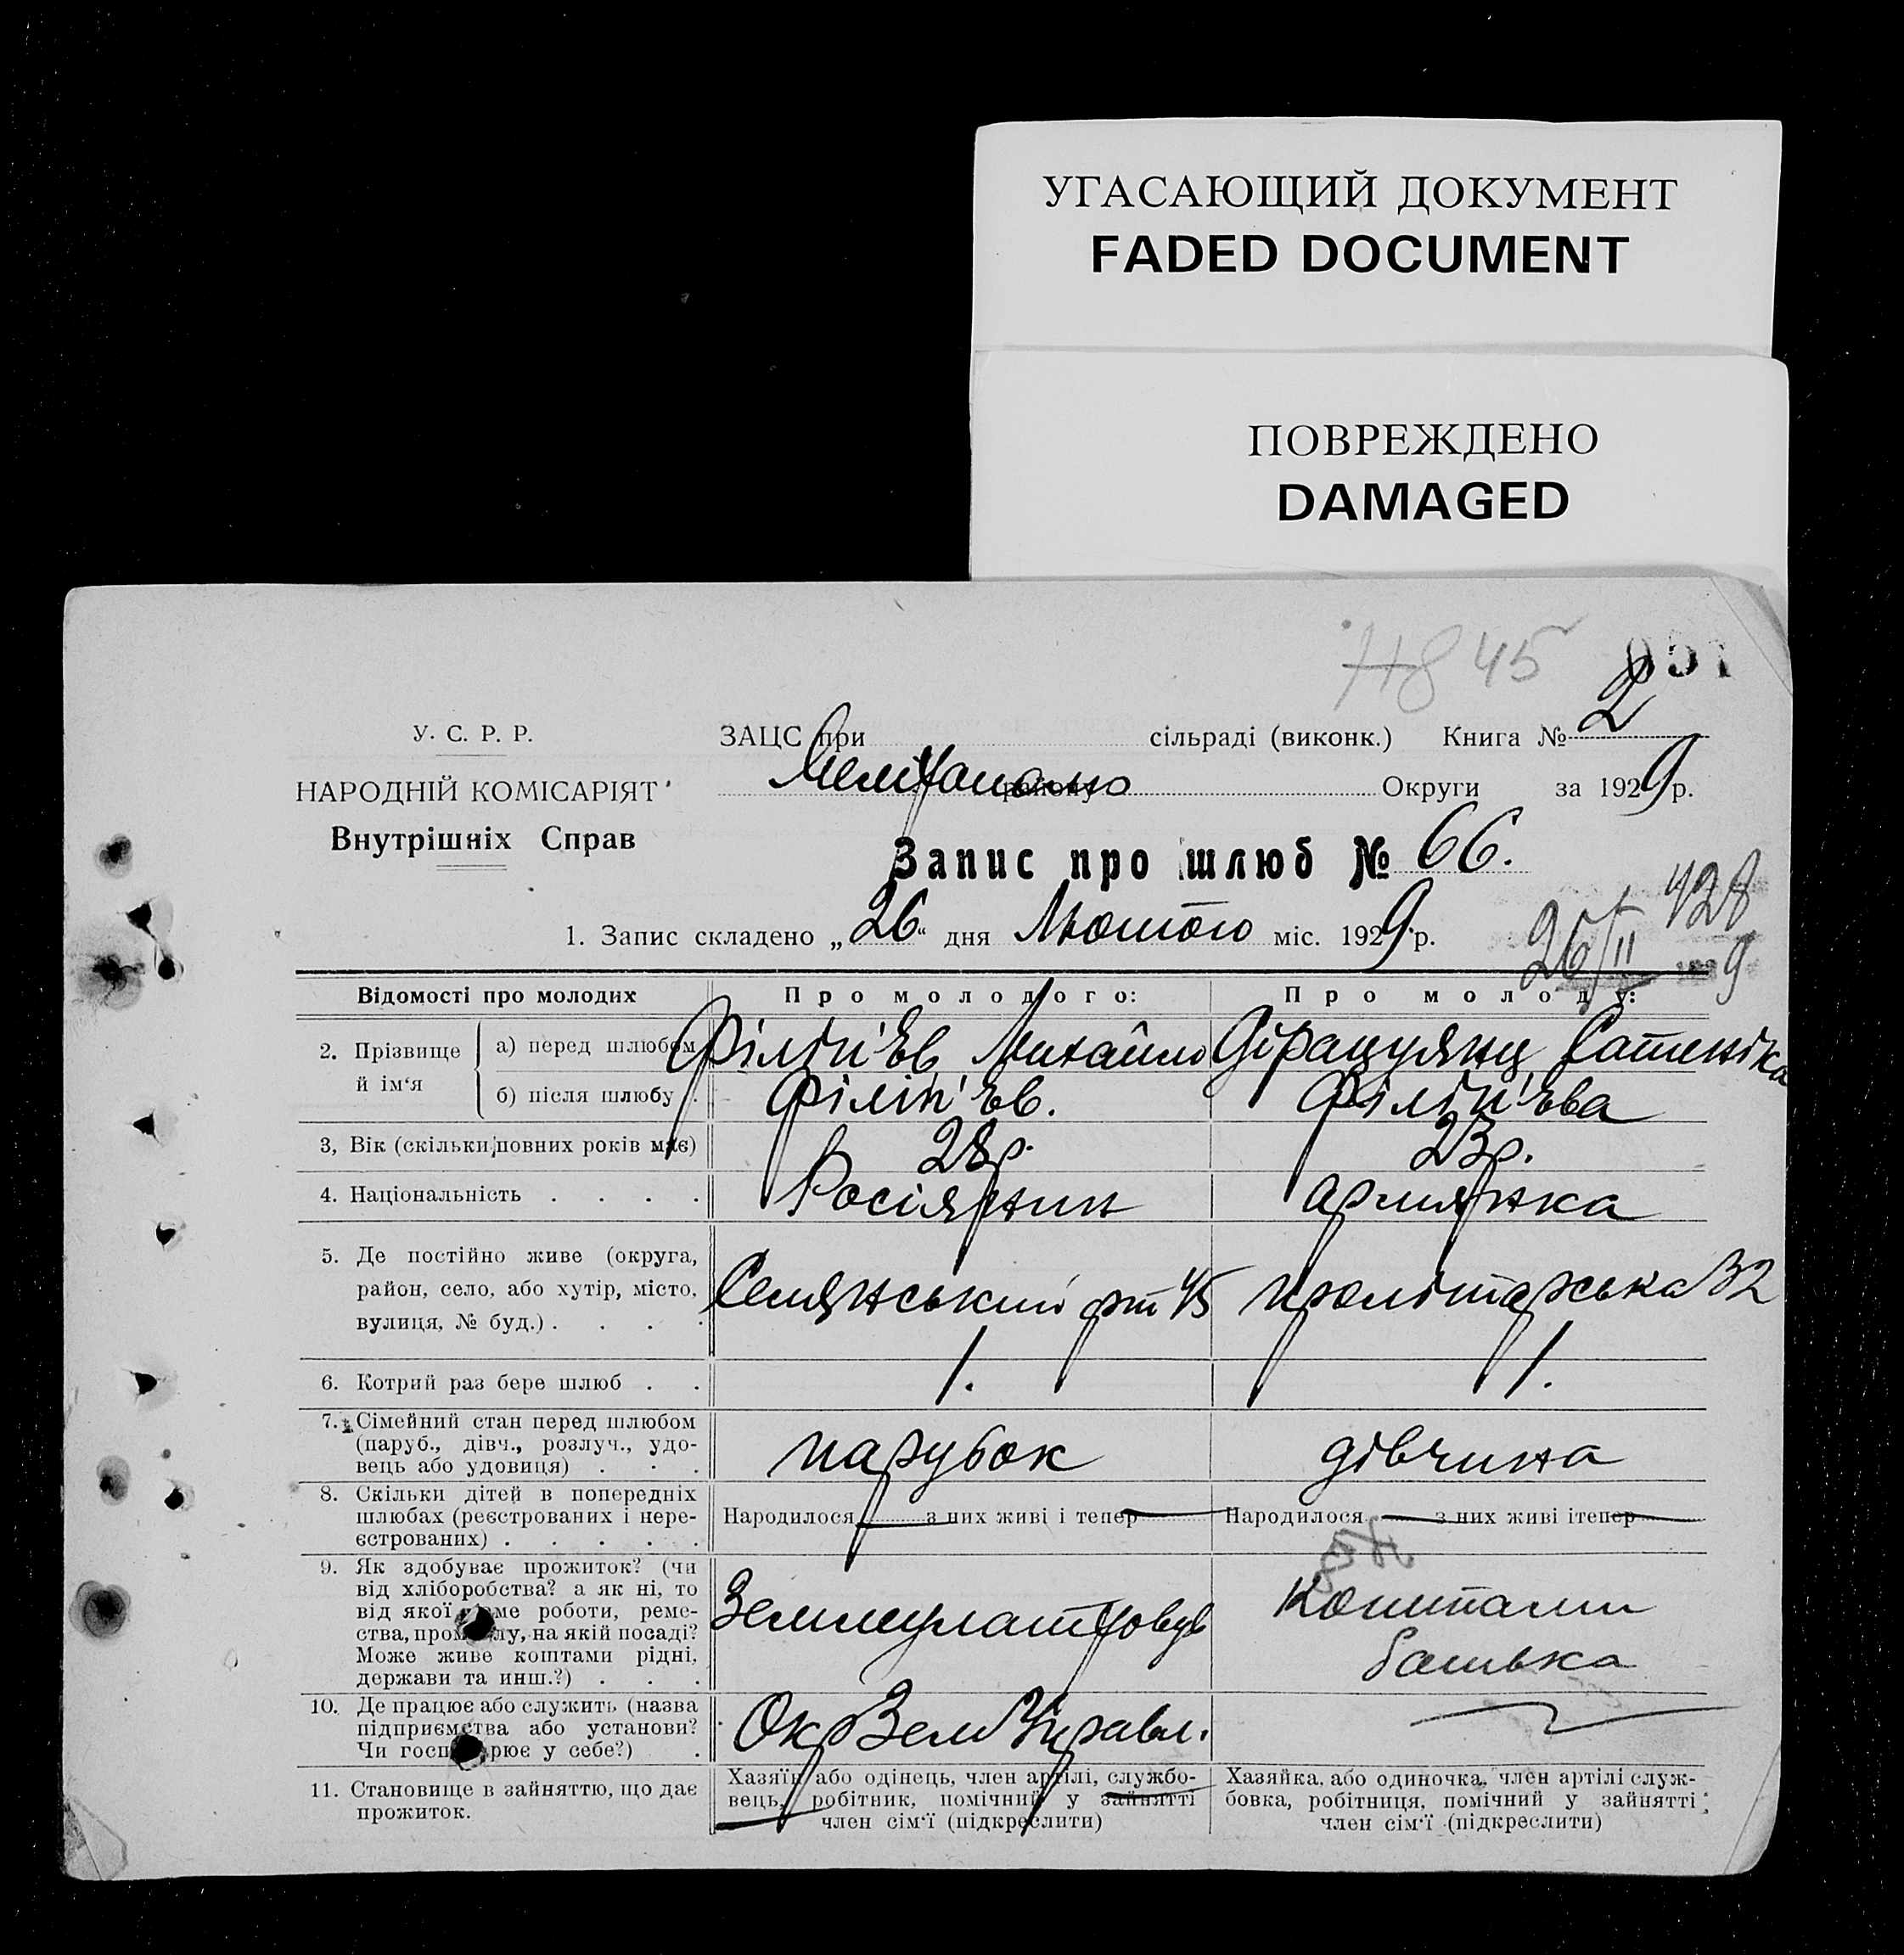 УГАСАЮЩИЙ ДОКУМЕНТ
FADED DOCUMENT
ПОВРЕЖДЕНО
DAMAGED
45
У. С. Р. Р.
НАРОДНІЙ КОМІСАРІЯТ
Внутрішніх Справ
ЗАЦС при сільраді (виконк.) Книга № 2
району Округи за 1929 р.
Запис про шлюб № 66.
428
1. Запис складено „26“ дня Лютого міс. 1929 р.
26/II 9
Відомості про молодих
Про молодого:
Про молоду:
2. Прізвище й ім‘я
а) перед шлюбом
Філіп'єв Михайло
Сатеніка
б) після шлюбу .
Філіп'єв.
Філіп'єва
3, Вік (скільки повних років має)
28р.
23р.
4. Національність . . . .
Росіянин
Армянка
5. Де постійно живе (округа,
район, село, або хутір, місто,
вулиця, № буд.) . . . .
45
32
6. Котрий раз бере шлюб . .
1.
1.
7. Сімейний стан перед шлюбом
(паруб., дівч., розлуч., удо-
вець або удовиця) . . .
парубок
дівчина
8. Скільки дітей в попередніх
шлюбах (реєстрованих і нере-
єстрованих) . . . . .
Народилося з них живі і тепер
Народилося з них живі ітепер
9. Як здобуває прожиток? (чи
від хліборобства? а як ні, то
від якої саме роботи, реме-
ства, промислу, на якій посаді?
Може живе коштами рідні,
держави та инш.?) . . .
Коштами
батька
10. Де працює або служить (назва
підприємства або установи?
Чи господарює у себе?) .
ОкрЗемУправл.
11. Становище в зайняттю, що дає
прожиток.
Хазяїн або одінець, член артілі, службо-
вець, робітник, помічний у зайнятті
член сім‘ї (підкреслити)
Хазяйка, або одиночка, член артілі служ-
бовка, робітниця, помічний у зайнятті
член сім‘ї (підкреслити)